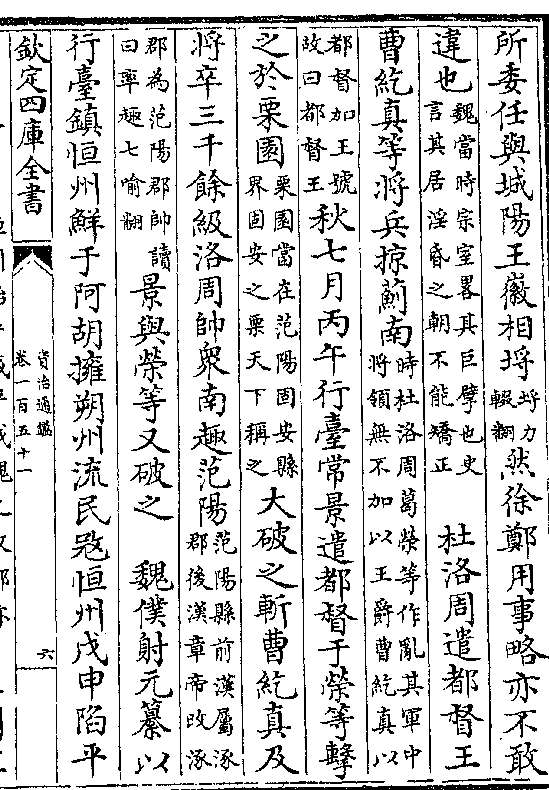 所委任與城陽王徽相埒埒力輟翻然徐鄭用事略亦不敢
違也魏當時宗室畧其巨擘也史言其居淫昏之朝不能矯正 杜洛周遣都督王
曹紇真等將兵掠薊南時杜洛周葛榮等作亂其軍中將領無不加以王爵曹紇真以
都督加王號故曰都督王秋七月丙午行臺常景遣都督于榮等擊
之於栗園栗園當在范陽固安縣界固安之栗天下稱之大破之斬曹紇真及
將卒三千餘級洛周帥衆南趣范陽范陽縣前漢屬涿郡後漢章帝改涿
郡為范陽郡帥讀曰率趣七喻翻景與榮等又破之 魏僕射元纂以
行臺鎮恒州鮮于阿胡擁朔州流民寇恒州戊申陷平
欽定四庫全書
資治通鑑
卷一百五十一
六